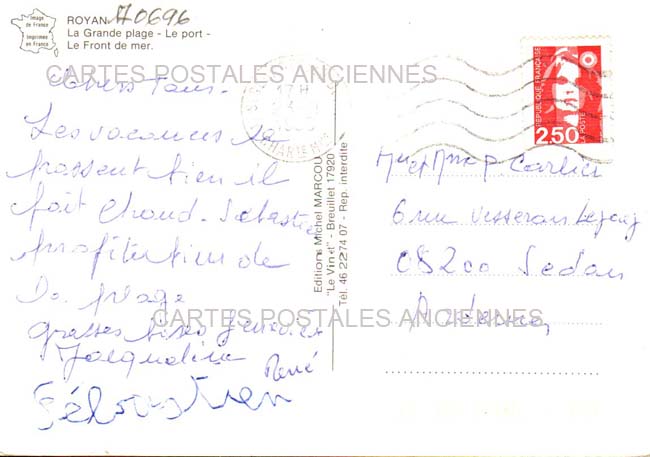 Image
de France
Imprimée
en France
ROYAN A0696
La Grande plage - Le port -
Le Front de mer.
CARTES POSTALES ANCIENNES
17 H
CHARENTE Mme
RÉPUBLIQUE FRANÇAISE
2,50
LA POSTE
Chers Tous.
Les vacances se
passent bien il
fait chaud. Sébastien
profite bien de
la plage
grosses bises
Jacqueline
René
Sébastien
Editions Michel MARCOU
"Le Vinet" - Breuillet 17920
Tél. 46 22 74 07 - Rep. interdite
Mr et Mme P. Carlier
6 rue Vesseron Lejay
08200 Sedan
Ardennes
CARTES POSTALES ANCIENNES